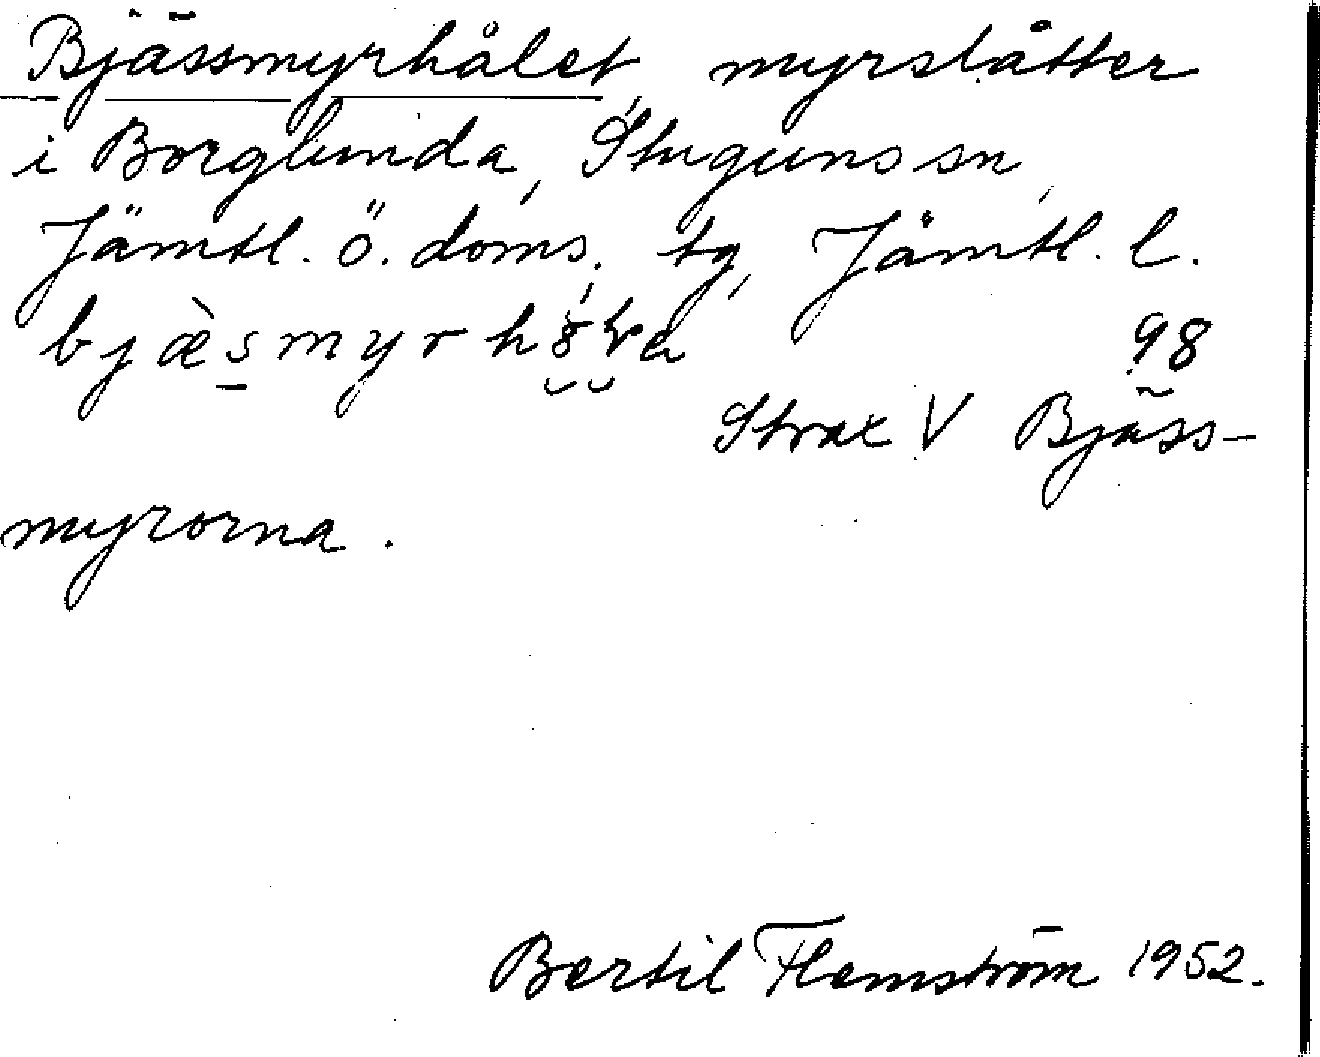 Bjässmyrhålet, myrslåtter
i Borglunda, Stuguns sn,
Jämtl. ö. doms. tg, Jämtl. l.
98
Strax V Bjäss-
myrorna.
Bertil Flemström 1952.